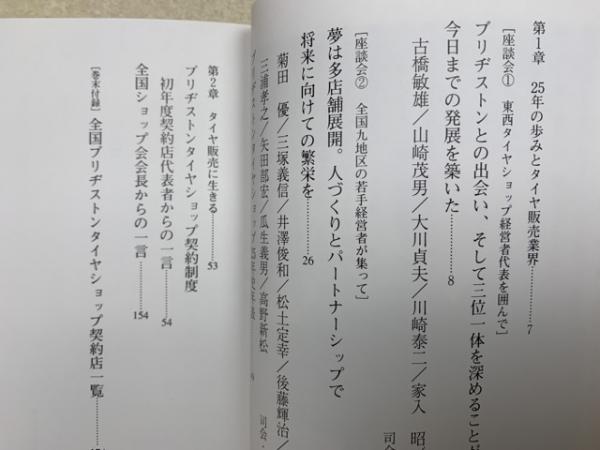 第1章　25年の歩みとタイヤ販売業界………7
［座談会①　東西タイヤショップ経営者代表を囲んで］
ブリヂストンとの出会い、そして三位一体を深めることが
今日までの発展を築いた………8
古橋敏雄／山崎茂男／大川貞夫／川崎泰二／家入　昭
司会
［座談会②　全国九地区の若手経営者が集って］
夢は多店舗展開。人づくりとパートナーシップで
将来に向けての繁栄を………26
菊田　優／三塚義信／井澤俊和／松土定幸／後藤輝治／
三浦孝之／矢田部宏／瓜生義男／高野新松
司会・
ブリヂストンタイヤショップ25年史年表
第2章　タイヤ販売に生きる………53
ブリヂストンタイヤショップ契約制度
初年度契約店代表者からの一言………54
全国ショップ会会長からの一言………154
［巻末付録］全国ブリヂストンタイヤショップ契約店一覧………